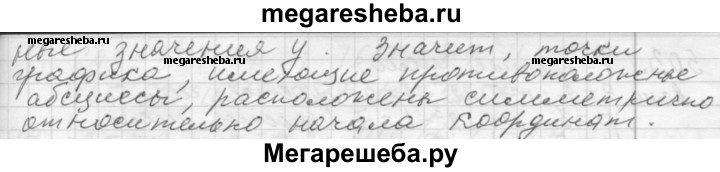 megaresheba.ru
ные значения y. Значит, точки
графика, имеющие противоположные
абсциссы, расположены симметрично
относительно начала координат.
megaresheba.ru
megaresheba.ru
megaresheba.ru
Мегарешеба.ру